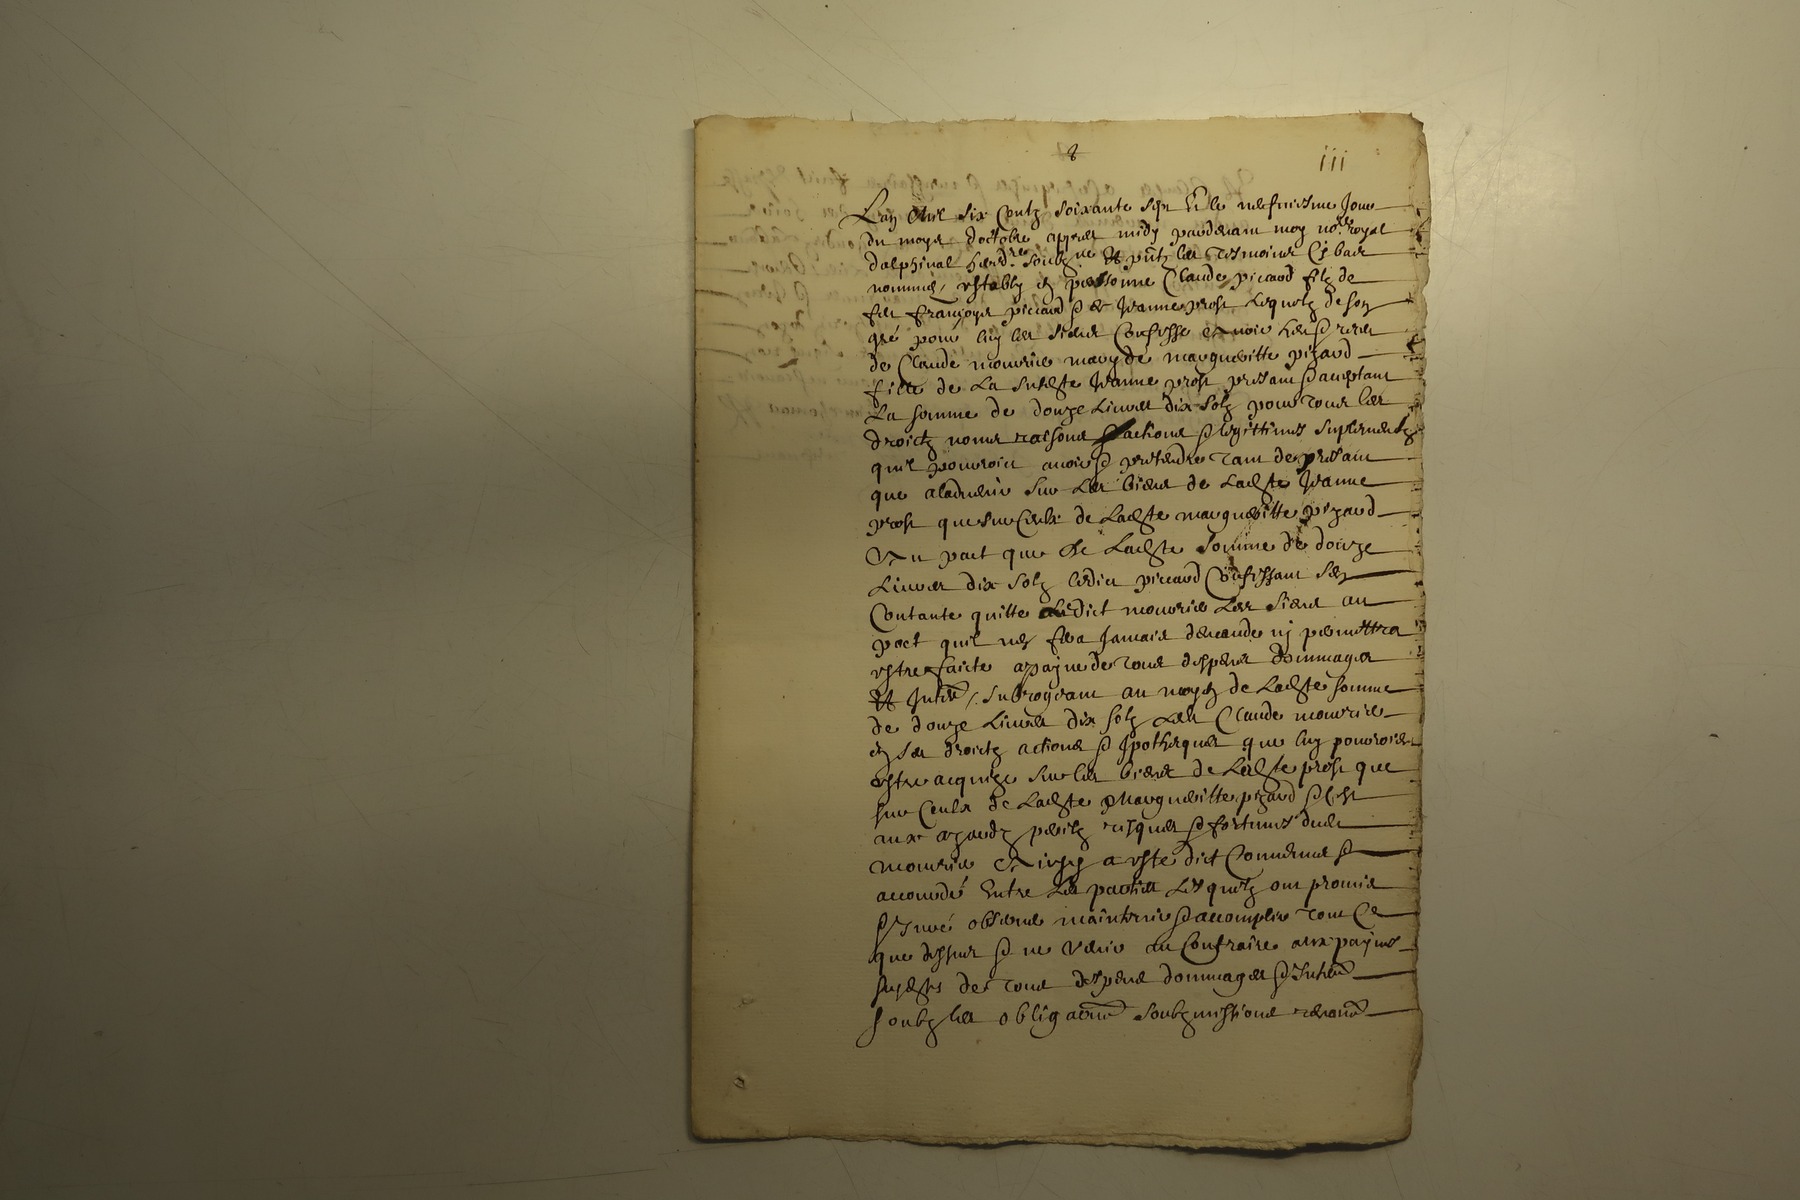 8
iii
Lan Mil six Centz soixante sept Et le nefviesme Jour
du moys doctobre appres midy pardevant moy no.re royal
dalphinal hered.re soubz.ne Et pñtz les tesmoins Cy bas
nommes / estably en personne Claude piccard filz de
feu françoys piccard & de Jeanne prost Lequelz de son
gré pour luy les siens Confesse Avoir heu & receu
de Claude mouriés mary de margueritte pizard
fille de La susdte Jeanne prost present & aceptant
La somme de douze Livres dix solz pour tous les
droictz noms raisons & actions & legittimes suplements
quil pouvoict avoir & pretendre tant de present
que aladvenir sur Les biens de Ladte Jeanne
prost que sur Ceulx de Ladte marguerite pizard
En pact que de Ladte somme de douze
Livres dix solz ledict piccard Confessant sen
Contante quitte Ledict mouries Les siens au
pact quil nen fera Jamais demande nj permettra
estre faicte a payne de tous despens dommages
Et Intrz / subrogeant au moyen de Ladte somme
de douze Livres dix solz Ledt Claude mouries
en ses droictz actions & Ipotheques que luy pouvoient
estre acquize sur les biens de Ladte prost que
sur Ceulx de Ladte Margueritte pizard & C'est
aux azardz perilz risques & fortunes dudt
mouries Ainsy a esté dict Convenu &
accordé Entre Les parties Lesquelz ont promis
& Juré observer maintenir & accomplir tout Ce
que dessus & ne venir au Contraire aux paynes
susdtes de tous despens dommages & Intrz
soubz les obliga.ons soubzmissions renon.